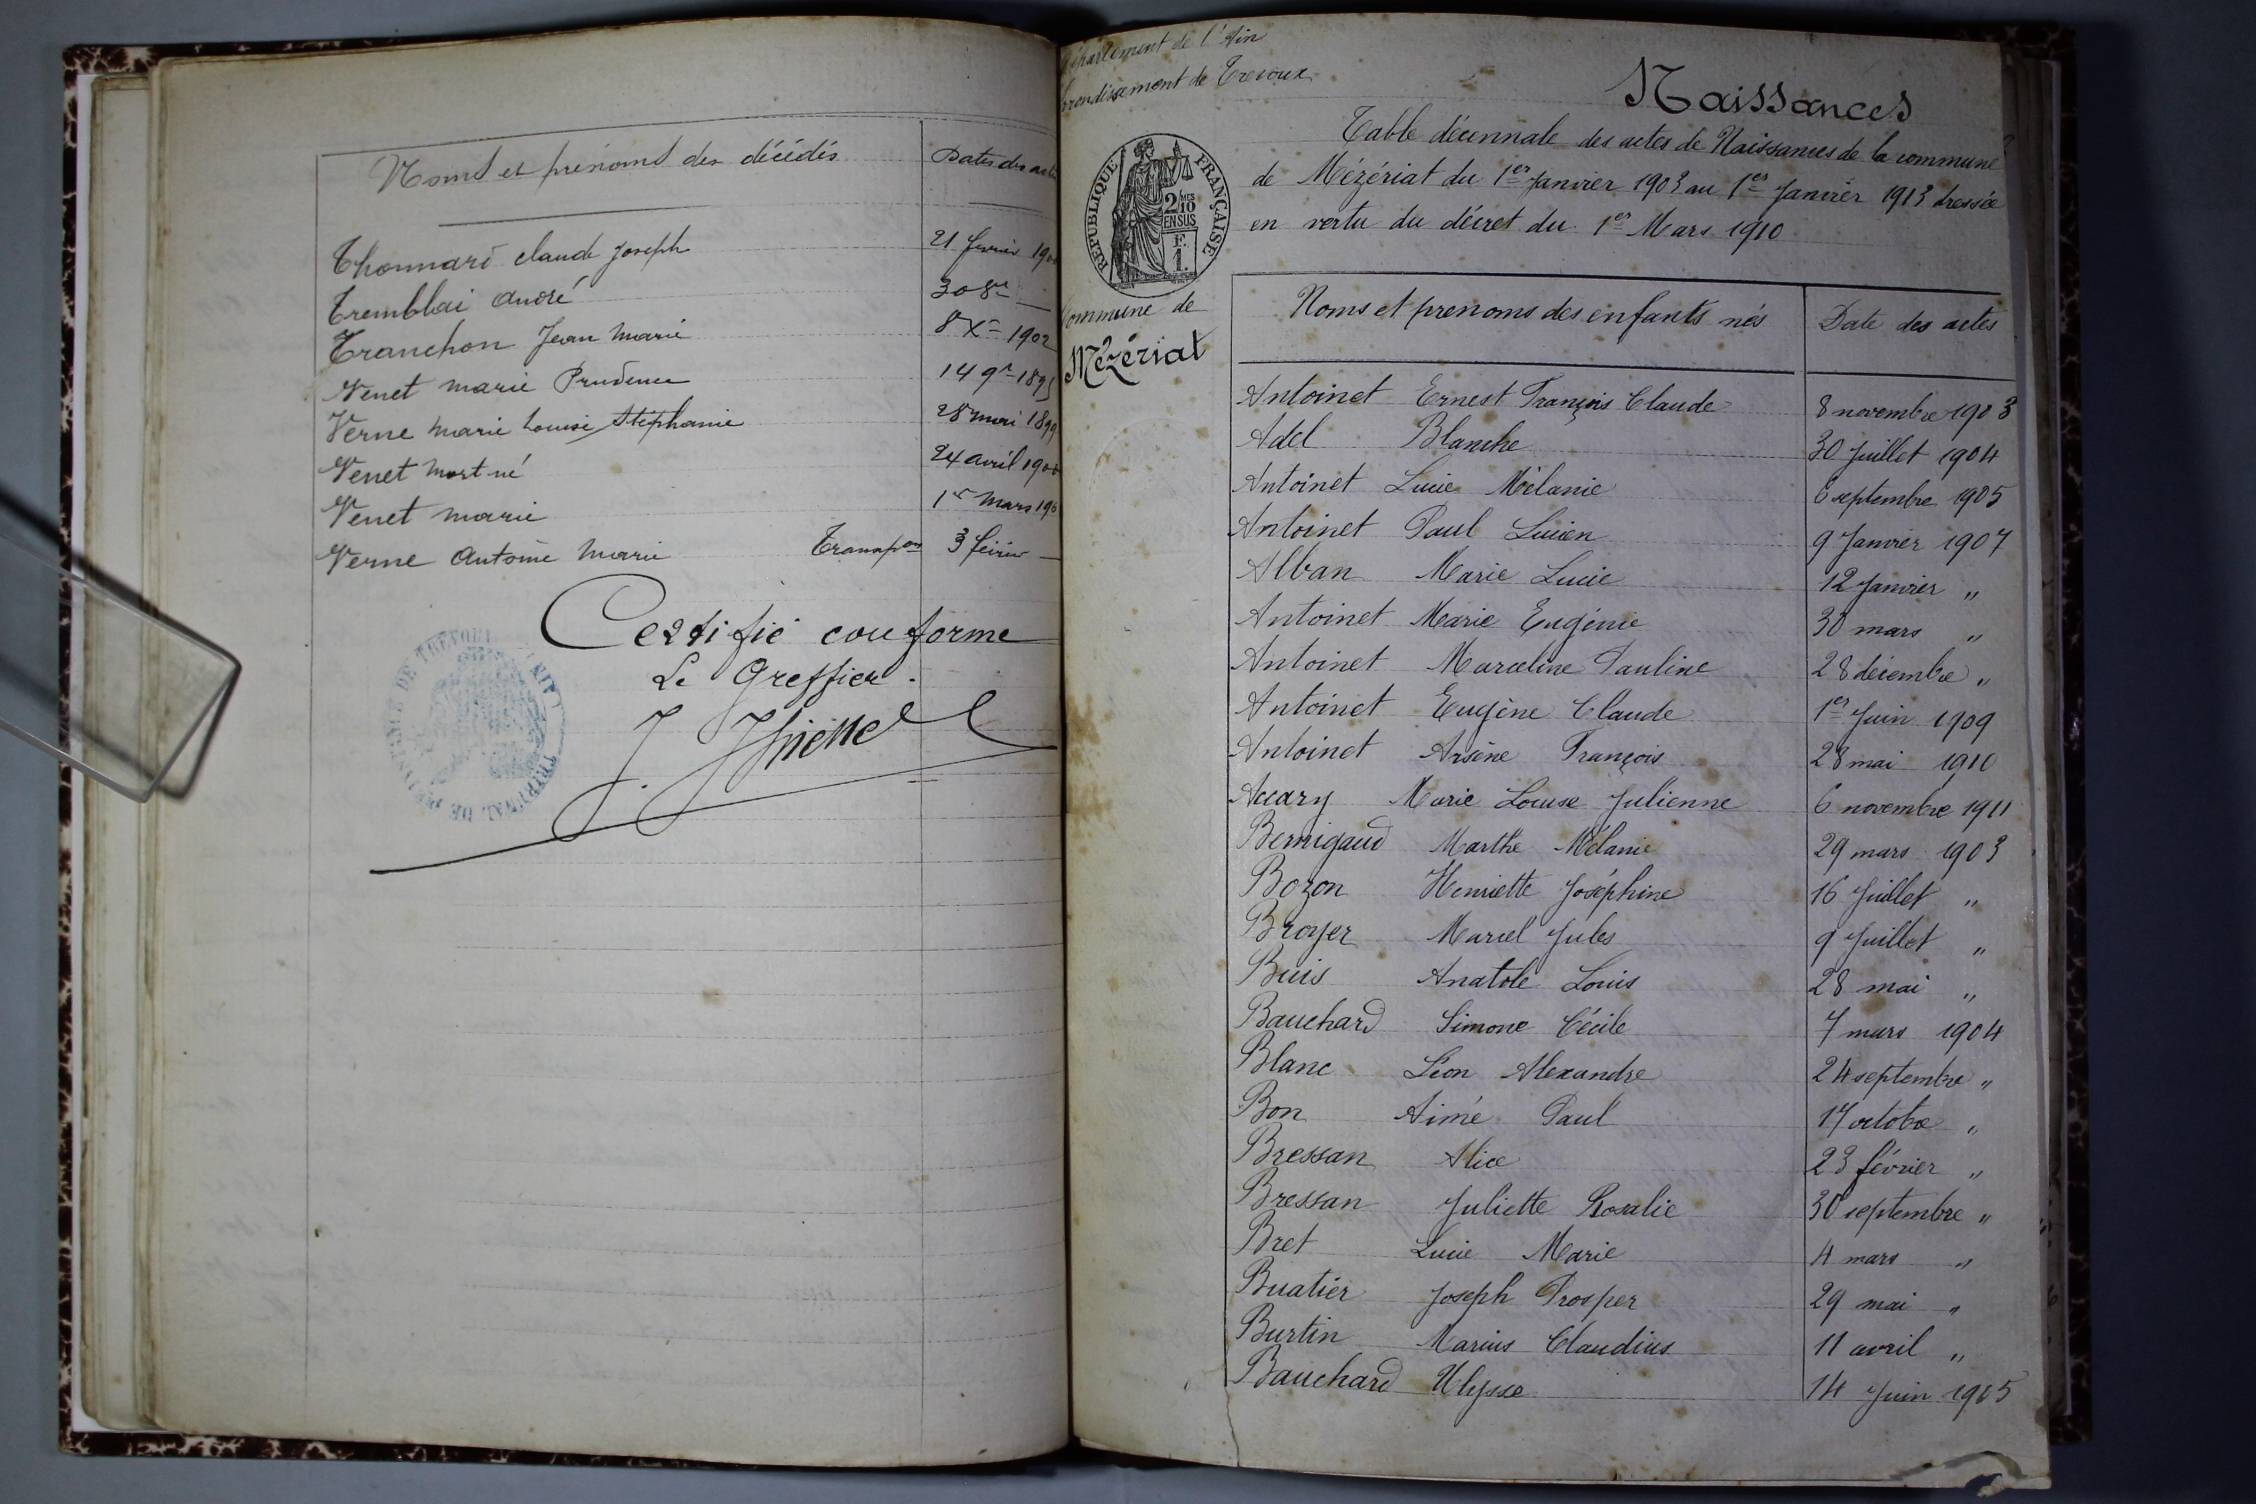 Noms et prénoms des décédés
Dates des
Thonnard claude joseph
21 février
Tremblai andré
30 8re —
Tranchon Jean Marie
8 Xre 1902
Venet marie Prudence
14 9re
Verne Marie Louise Stéphanie
28 mai 1899
Venet Mort-né
24 avril
Venet marie
1er Mars
Verne Antoine Marie Transpon
3 février —
Certifié conforme
Le Greffier.
TRIBUNAL DE
Département de l'Ain
Arrondissement de Trevoux
RÉPUBLIQUE FRANÇAISE
2 MES
10
EN SUS
F.
1.
Commune de
Mézériat
Naissances
Table décennale des actes de Naissances de la commune
de Mézériat du 1er Janvier 1903 au 1er Janvier 1913 dressée
en vertu du décret du 1er Mars 1910
Noms et prenoms des enfants nés
Date des actes
Antoinet Ernest François Claude 8 novembre 1903
Adel Blanche 30 Juillet 1904
Antoinet Lucie Mélanie 6 septembre 1905
Antoinet Paul Lucien 9 Janvier 1907
Alban Marie Lucie 12 Janvier "
Antoinet Marie Eugénie 30 mars "
Antoinet Marceline Pauline 28 décembre "
Antoinet Eugène Claude 1er Juin 1909
Antoinet Arsène François 28 mai 1910
Aucary Marie Louise Julienne 6 novembre 1911
Bernigaud Marthe Mélanie 29 mars 1903
Bozon Henriette Joséphine 16 Juillet "
Broyer Marcel Jules 9 Juillet "
Buis Anatole Louis 28 mai "
Bauchard Simone Cécile 7 mars 1904
Blanc Léon Alexandre 24 septembre "
Bon Aimé Paul 17 octobre "
Bressan Alice 23 février "
Bressan Juliette Rosalie 30 septembre "
Bret Lucie Marie 4 mars "
Buatier Joseph Prosper 29 mai "
Burtin Marius Claudius 11 avril "
Bauchard Ulysse 14 Juin 1905